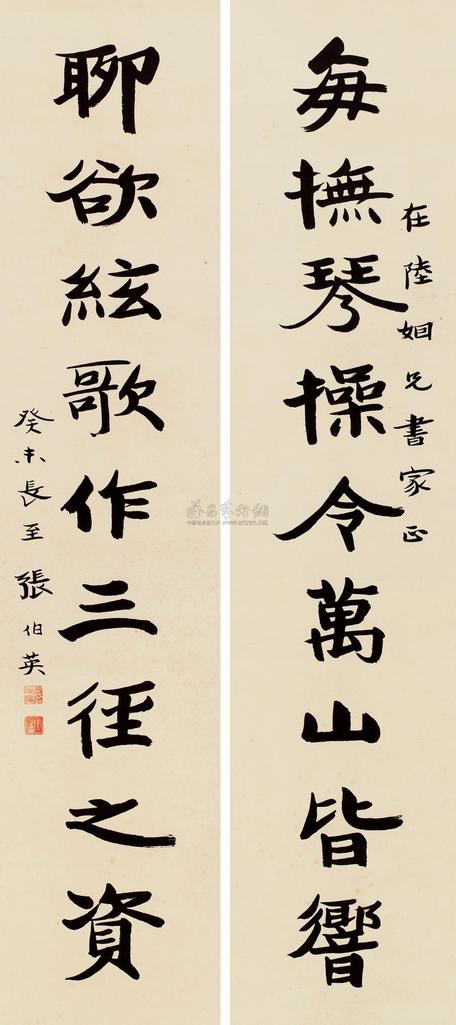 在陸姻兄書家正
每撫琴操令萬山皆響
聊欲絃歌作三徑之資
癸未長至張伯英
www.artron.net